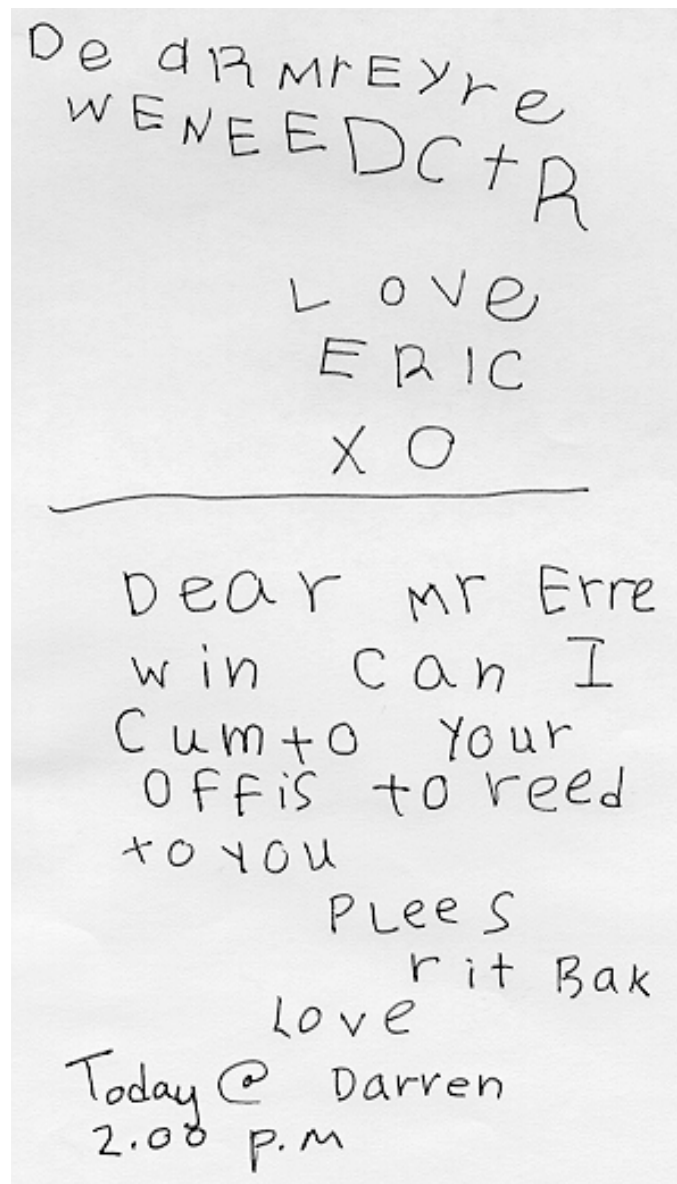 De aR MrEyre
WENEEDCtR
Love
ERIC
XO
Dear Mr Erre
win can I
Cumto your
OFFis to reed
to you
PLees
rit Bak
Love
Today @ Darren
2.00 p.m